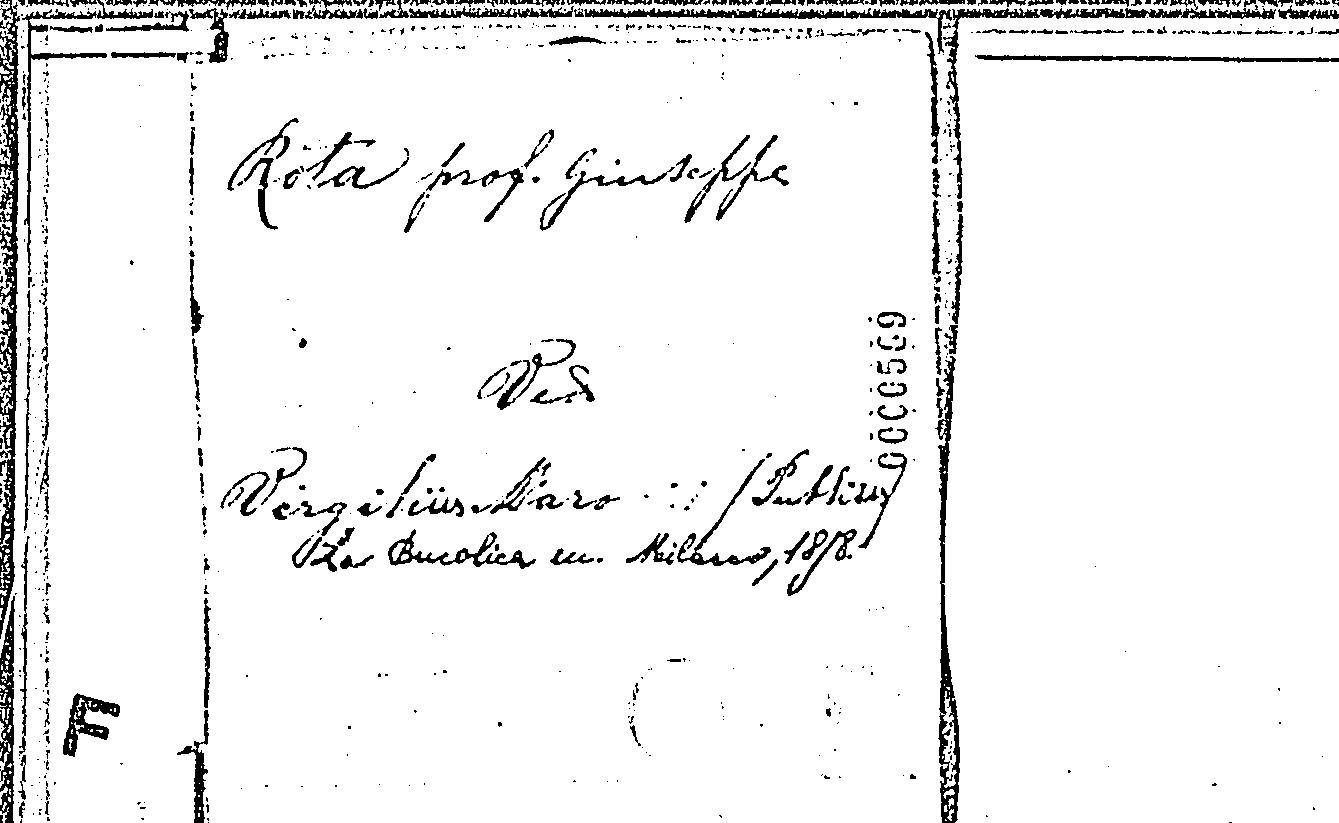 Rota prof. Giuseppe
Ved
Virgilius Maro :: (Publius)
La Bucolica ecc. Milano, 1878.
0000509
F